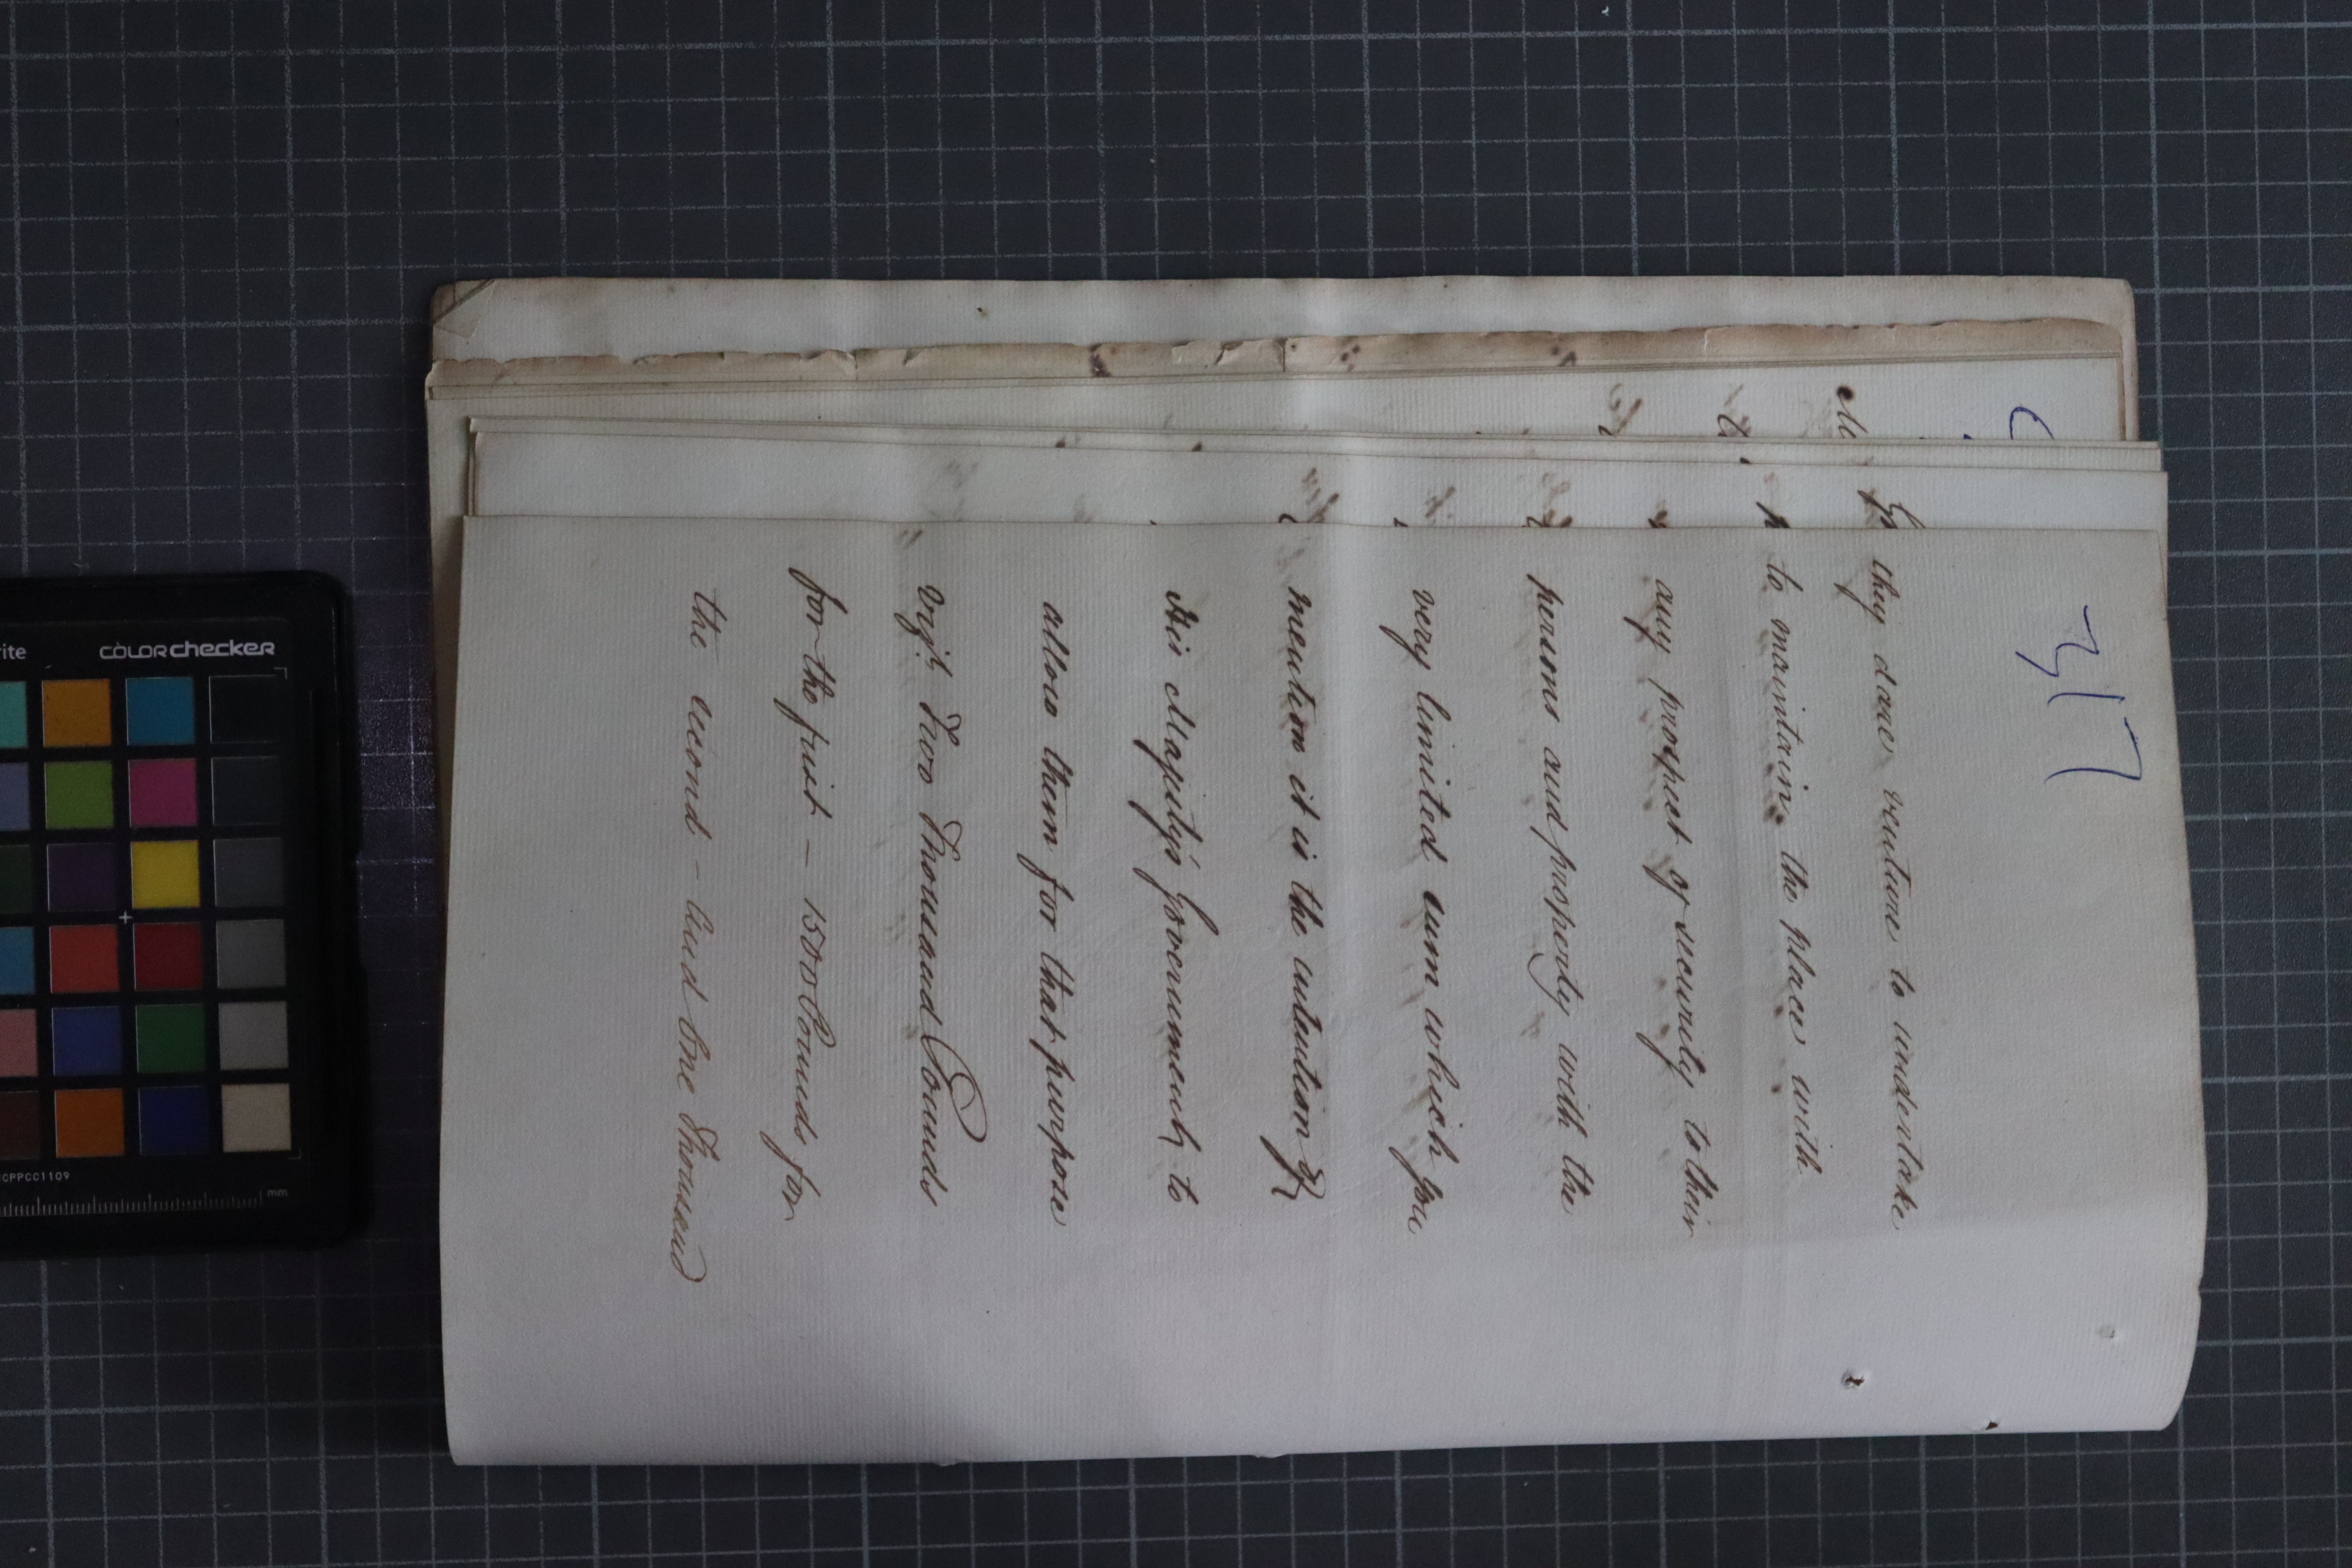 317
they dare venture to undertake
to maintain the place with
any prospect of security to their
persons and property with the
very limited sum which you
mention it is the intention of
His Majesty's Government to
allow them for that purpose
vizt. Two Thousand Pounds
for the first – 1500 Pounds for
the second – and One Thousand
colorchecker
CCPPCC1109
mm